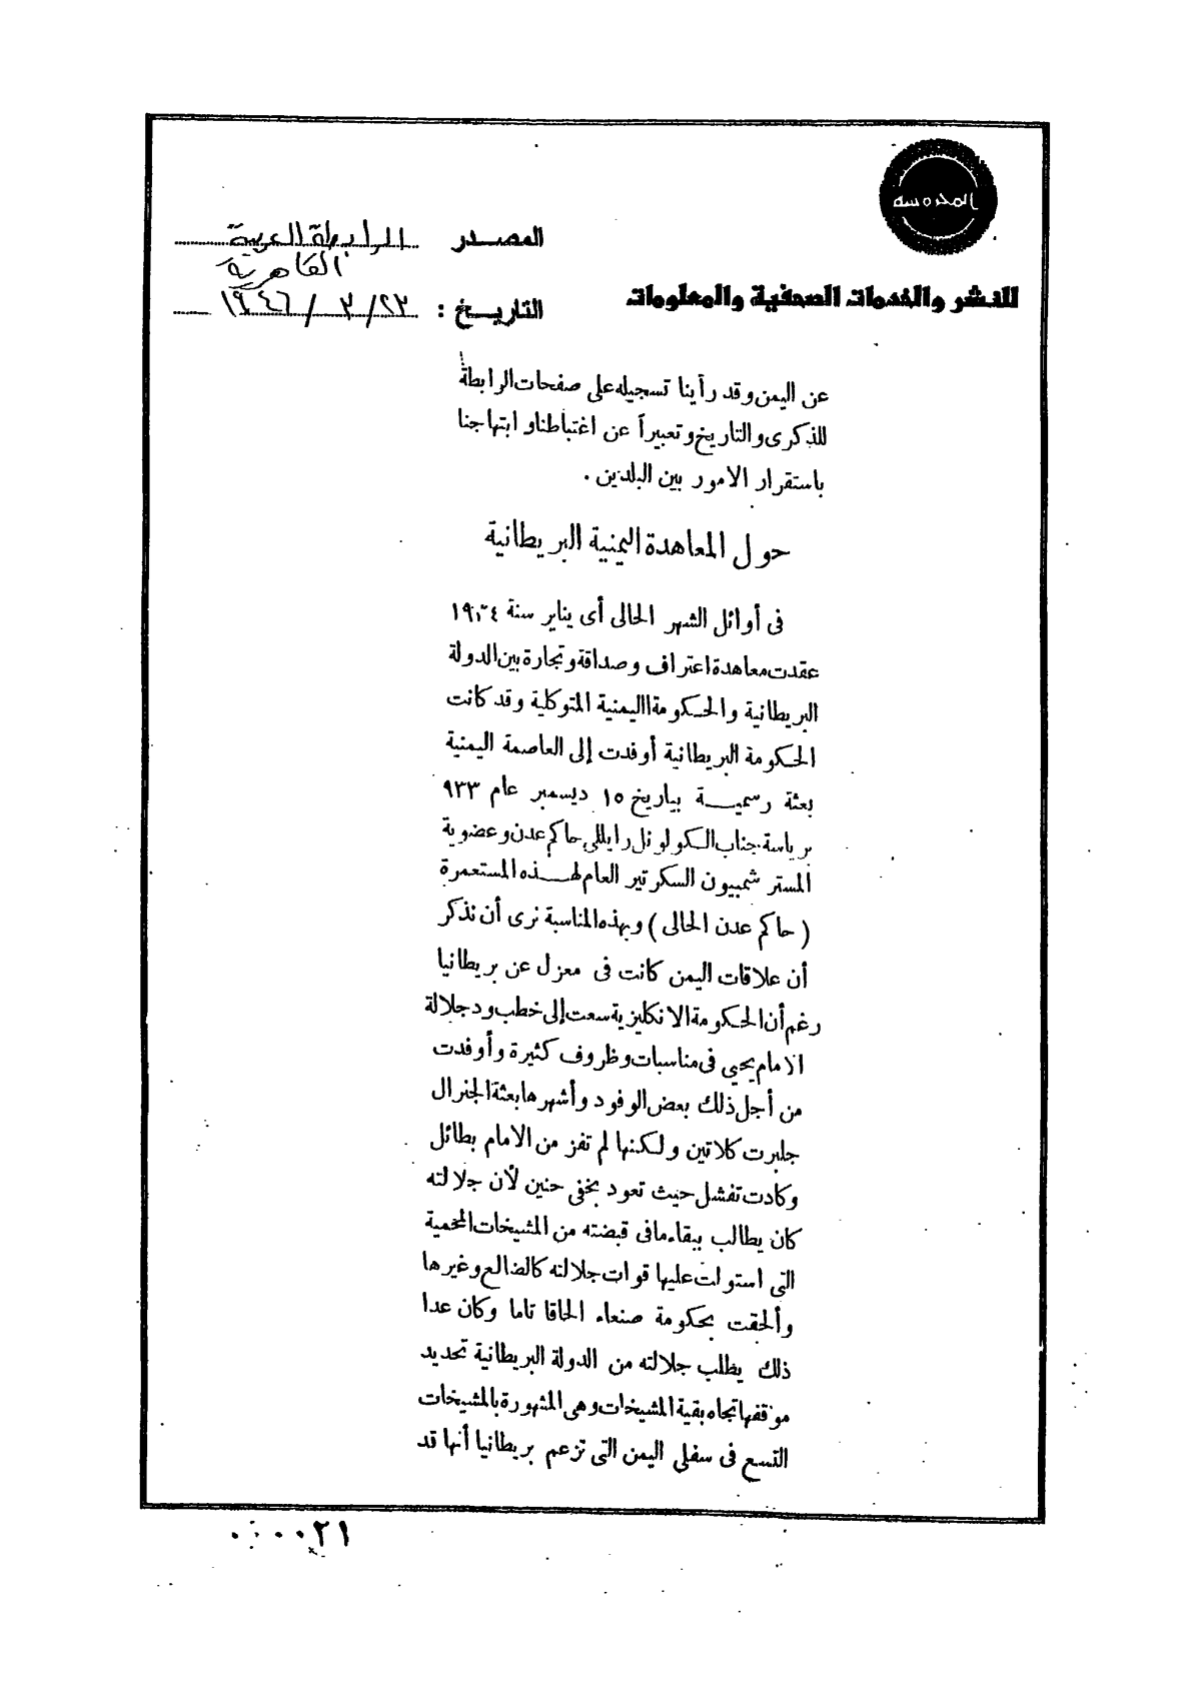 المحروسه
المصدر الرابطة العربية
القاهرية
للنشر والخدمات الصحفية والمعلومات
التاريخ : ٢٣/ ٣ / ١٩٤٦
عن اليمن وقد رأينا تسجيله على صفحات الرابطة
للذكرى والتاريخ وتعبيراً عن اغتباطنا وابتهاجنا
باستقرار الامور بين البلدين .
حول المعاهدة اليمنية البريطانية
فى أوائل الشهر الحالى أى يناير سنة ١٩٣٤
عقدت معاهدة اعتراف وصداقة وتجارة بين الدولة
البريطانية والحكومة اليمنية المتوكلية وقد كانت
الحكومة البريطانية أوفدت إلى العاصمة اليمنية
بعثة رسمية بياريخ ١٥ ديسمبر عام ٩٣٣
برياسة جناب الكولونل رايللى حاكم عدن وعضوية
المستر شمبيون السكرتير العام لهذه المستعمرة
( حاكم عدن الحالى ) وبهذه المناسبة نرى أن نذكر
أن علاقات اليمن كانت فى معزل عن بريطانيا
رغم أن الحكومة الانكليزية سعت إلى خطب ود جلالة
الامام يحيى فى مناسبات وظروف كثيرة وأوفدت
من أجل ذلك بعض الوفود وأشهرها بعثة الجنرال
جلبرت كلاتين ولكنها لم تفز من الامام بطائل
وكادت تفشل حيث تعود بخفى حنين لأن جلالته
كان يطالب ببقاء مافى قبضته من المشيخات المحمية
التى استولت عليها قوات جلالته كالضالع وغيرها
وألحقت بحكومة صنعاء الحاقا تاما وكان عدا
ذلك يطلب جلالته من الدولة البريطانية تحديد
موقفها تجاه بقية المشيخات وهى المشهورة بالمشيخات
التسع فى سفلى اليمن التى تزعم بريطانيا أنها قد
٠٠٠٠٢١